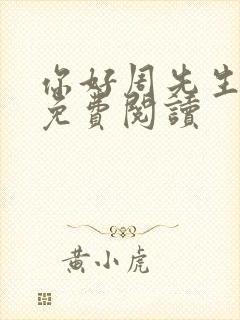 你好周先生
免費閱讀
黃小虎